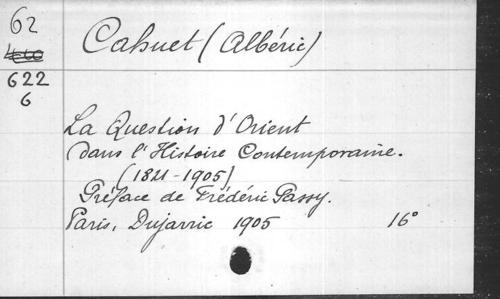 62
Cahuet (Albéric)
622
6
La Question d'Orient
dans l'Histoire Contemporaine.
(1821-1905)
Préface de Frédéric Passy.
Paris, Dujarric 1905 16°